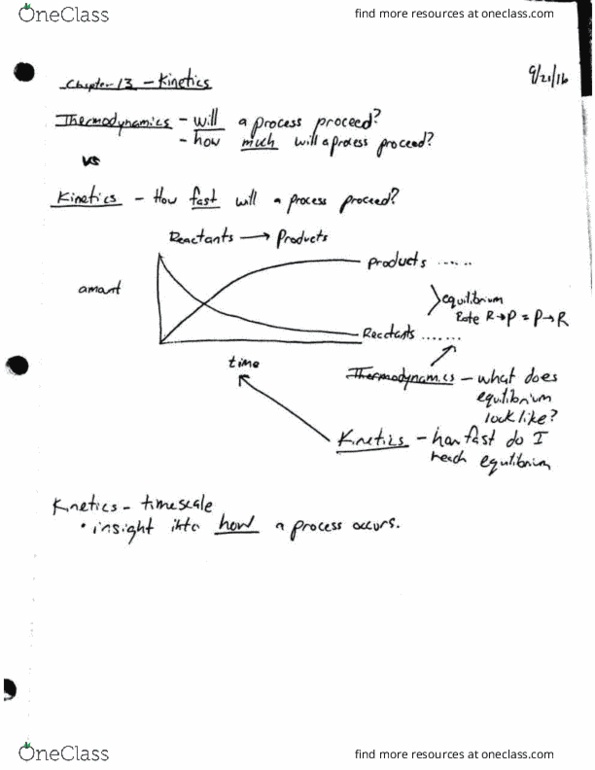 OneClass
find more resources at oneclass.com
Chapter 13 - Kinetics
9/21/16
Thermodynamics - will a process proceed?
- how much will a process proceed?
vs
Kinetics - How fast will a process proceed?
Reactants → Products
amount
products ......
equilibrium
Rate R→P = P→R
Reactants .......
time
Thermodynamics - what does
equilibrium
look like?
Kinetics - how fast do I
reach equilibrium
Kinetics - timescale
• insight into how a process occurs.
OneClass
find more resources at oneclass.com